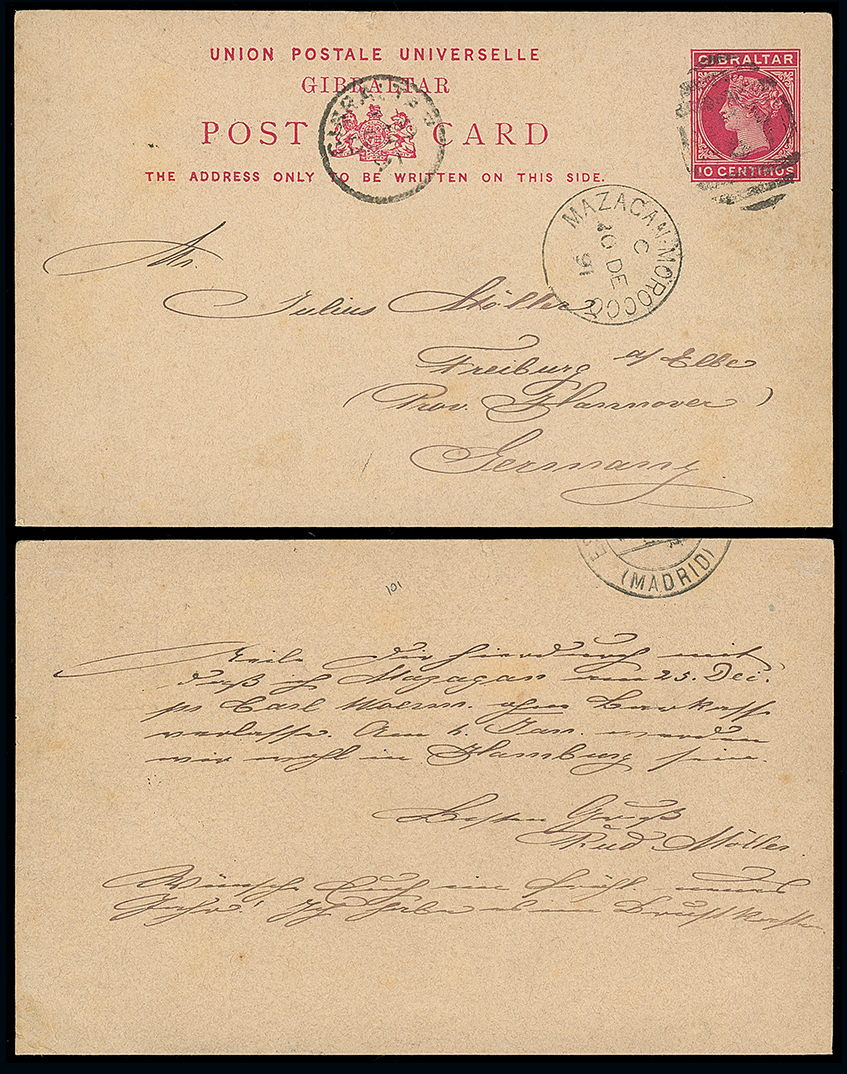 UNION POSTALE UNIVERSELLE
GIBRALTAR
POST CARD
THE ADDRESS ONLY TO BE WRITTEN ON THIS SIDE.
GIBRALTAR
10 CENTIMOS
MAZAGAN-MOROCCO
C
20 DE
91
Mr.
Julius Möller
Freiburg a/ Elbe
(Prov. Hannover)
Germany.
(MADRID)
101
Teile Dir hierdurch mit
daß ich Mazagan am 25. Dec.
pr Carl Woerm. ohne Barkasse
verlasse. Am 4. Jan. werden
wir wohl in Hamburg sein.
Besten Gruß
Rud. Möller.
Wünsche Euch ein fröhl. neues
Jahr! Ich habe es im